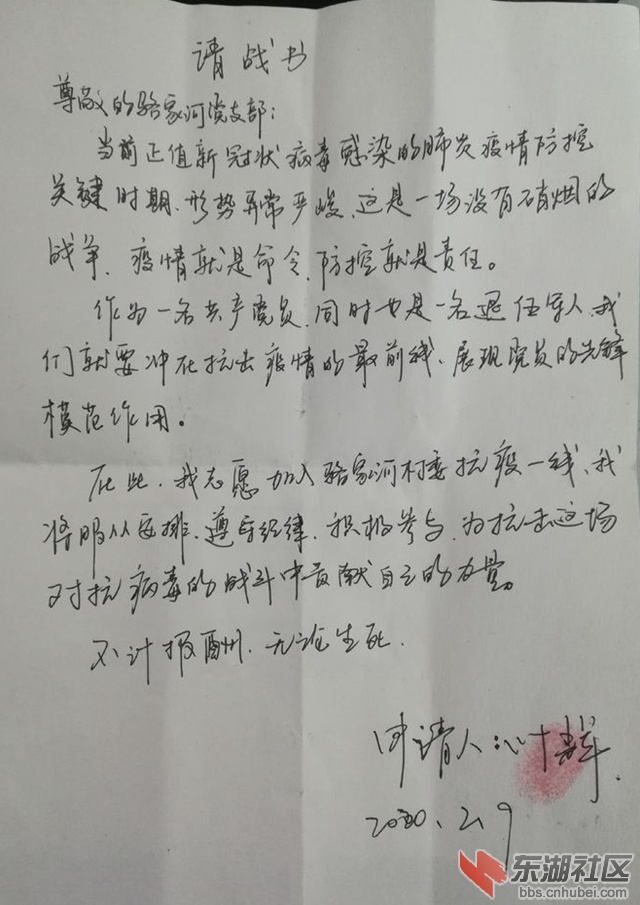 请战书
尊敬的骆家河党支部：
当前正值新冠状病毒感染的肺炎疫情防控
关键时期、形势异常严峻、这是一场没有硝烟的
战争、疫情就是命令、防控就是责任。
作为一名共产党员、同时也是一名退伍军人、我
们就要冲在抗击疫情的最前线、展现党员的先锋
模范作用。
在此、我志愿加入骆家河村委抗疫一线、我
将服从安排、遵守纪律、积极参与、为抗击这场
对抗病毒的战斗中贡献自己的力量。
不计报酬、无论生死.
申请人: 叶
2020.2.9
东湖社区
bbs.cnhubei.com